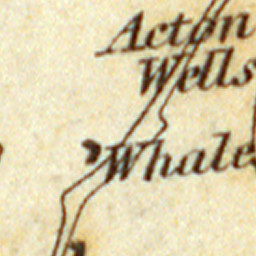 Acton
Wells
Whale